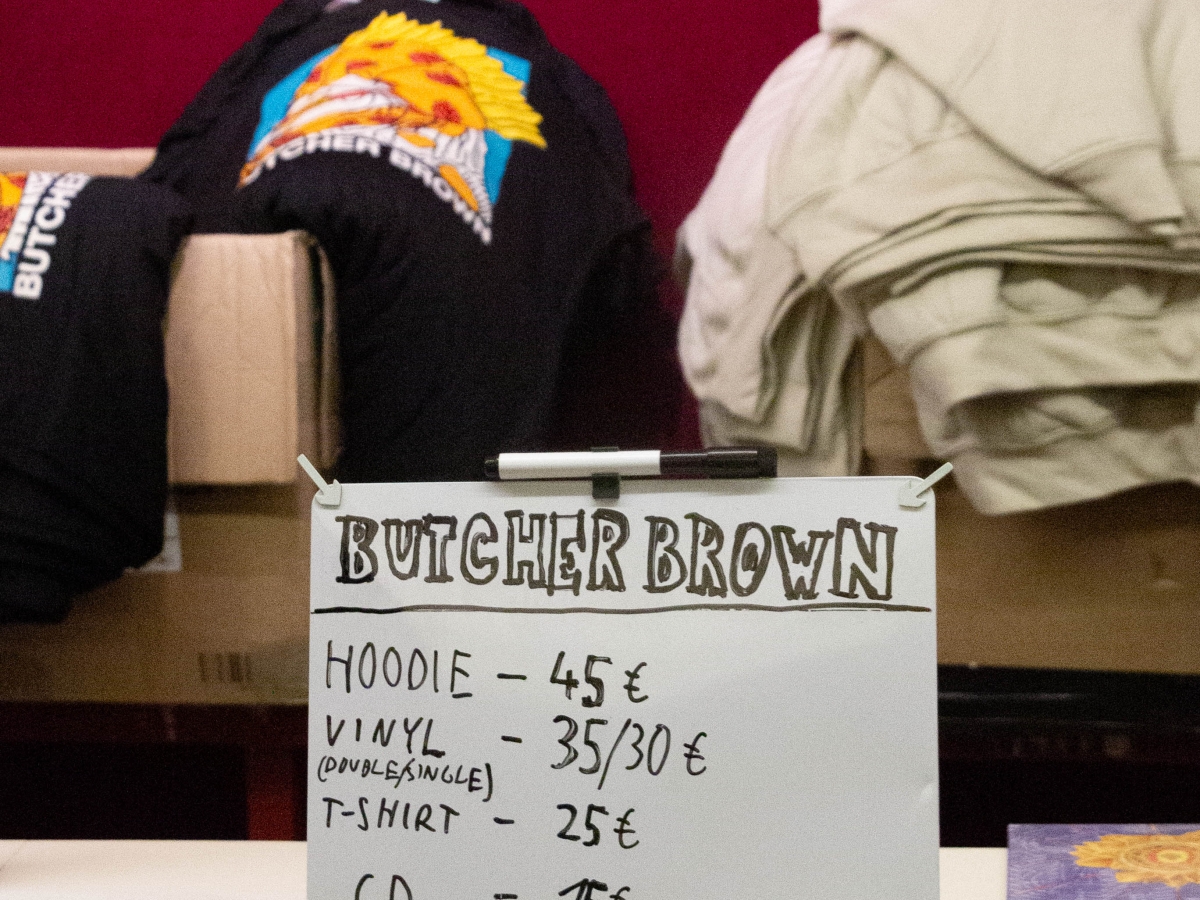 BUTCHER BROWN
BUTCHER
BUTCHER BROWN
HOODIE - 45 €
VINYL - 35/30 €
(DOUBLE/SINGLE)
T-SHIRT - 25 €
CD - 15€